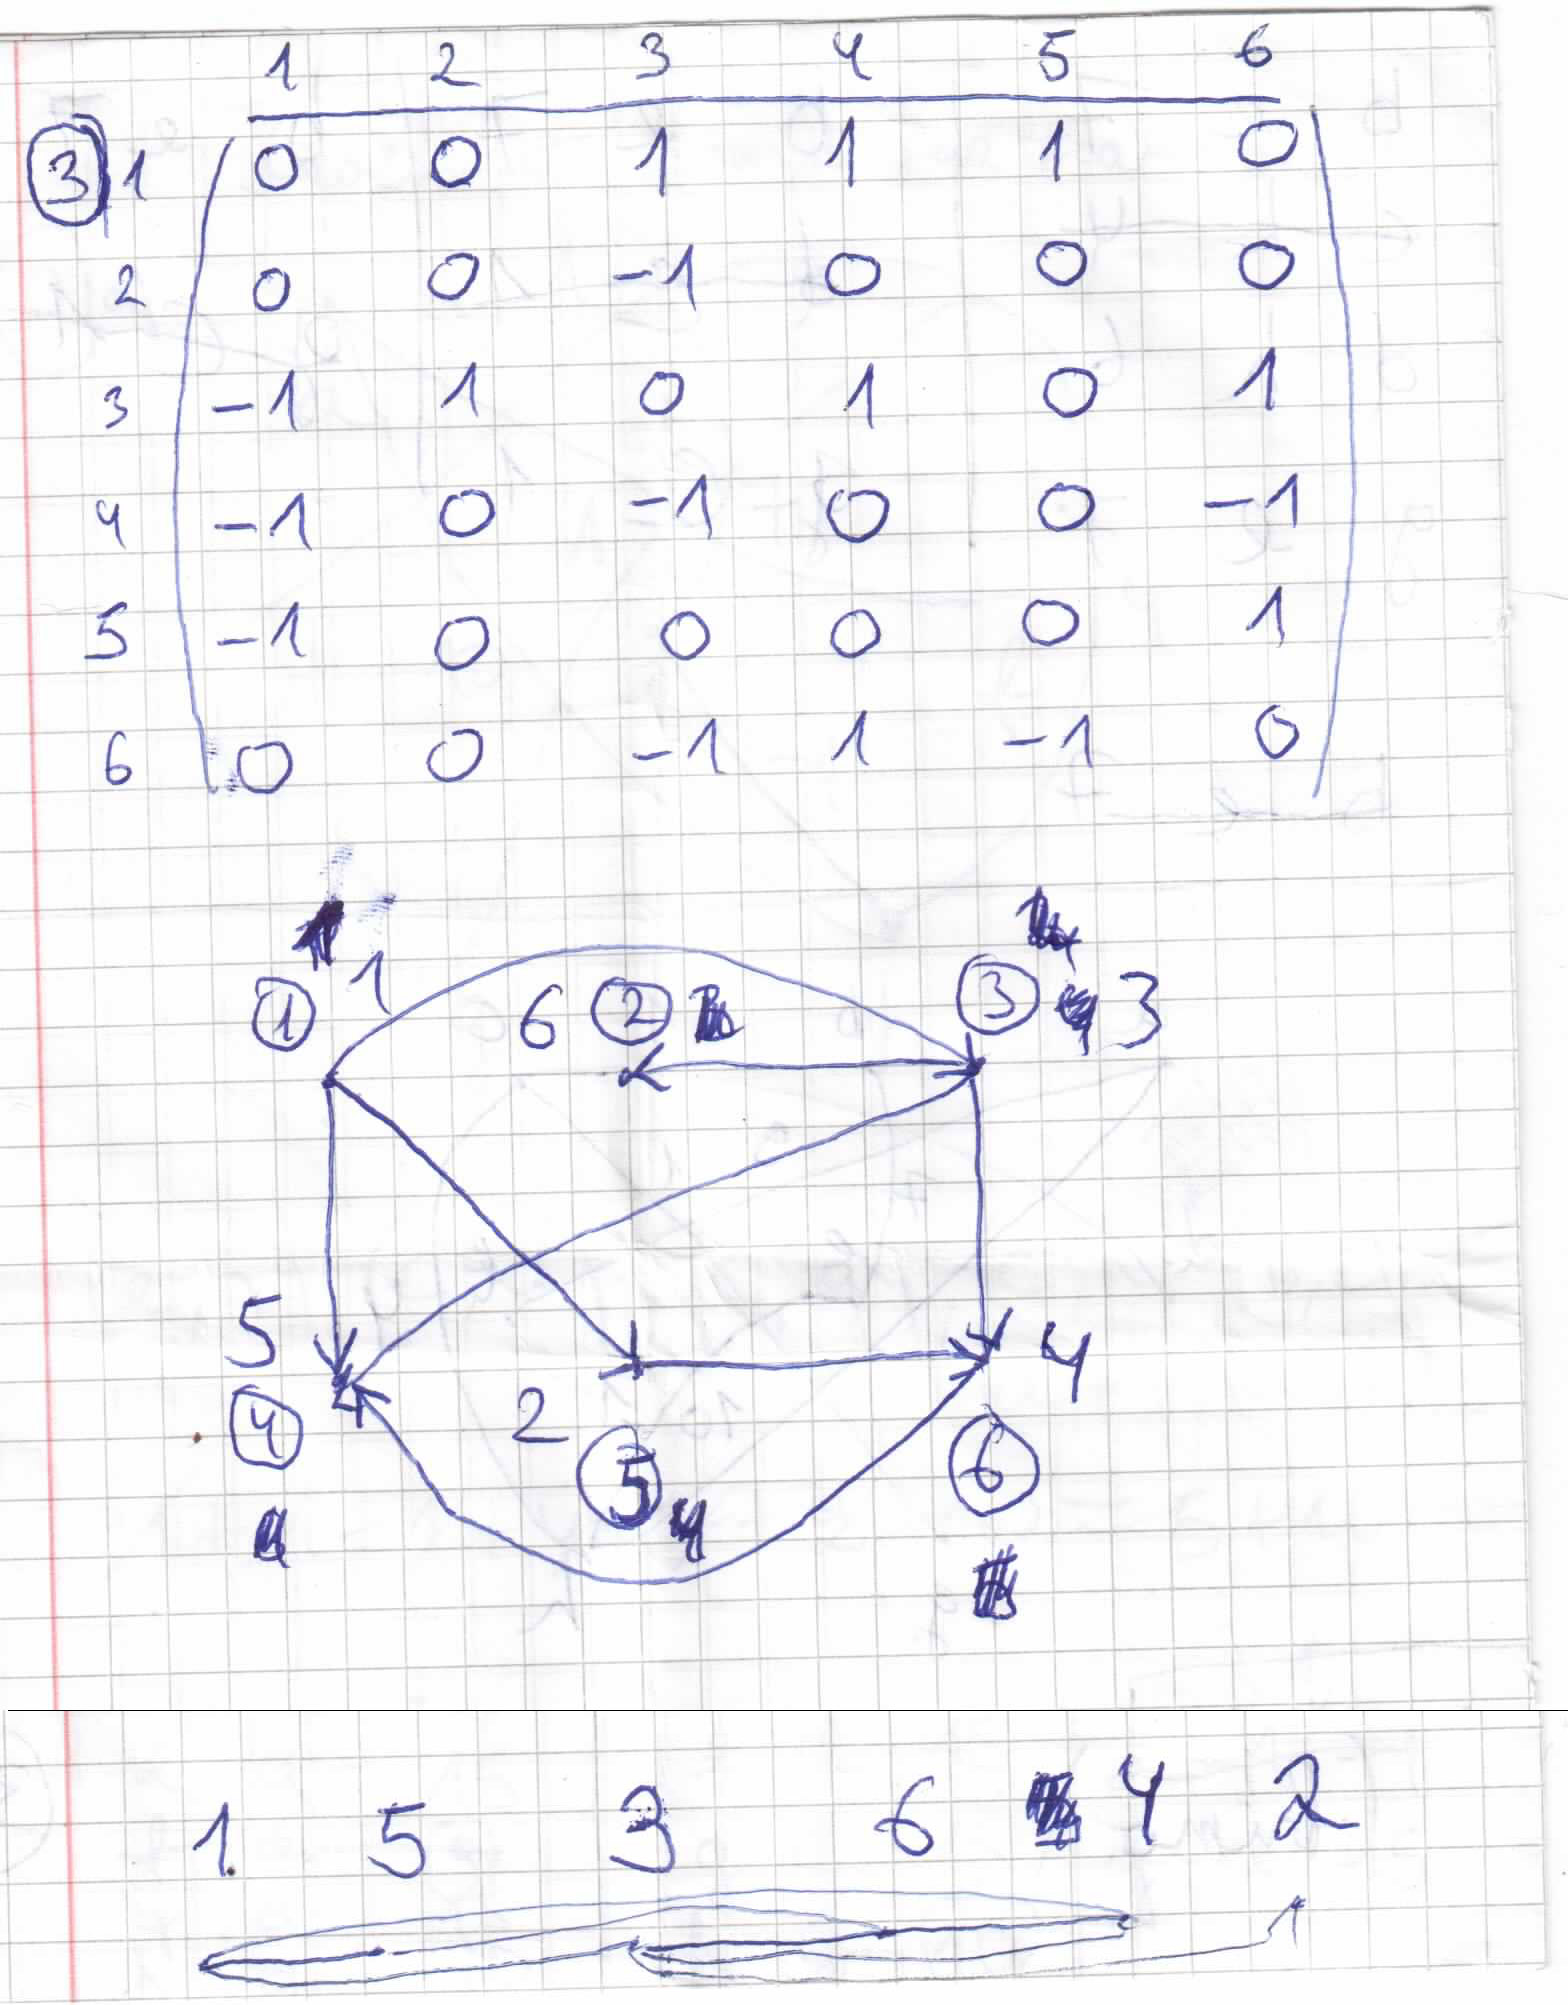 1 2 3 4 5 6
3 1 0 0 1 1 1 0
2 0 0 -1 0 0 0
3 -1 1 0 1 0 1
4 -1 0 -1 0 0 -1
5 -1 0 0 0 0 1
6 0 0 -1 1 -1 0
1 1 6 2 3 3
5 4
4 2 5 6
1 5 3 6 4 2